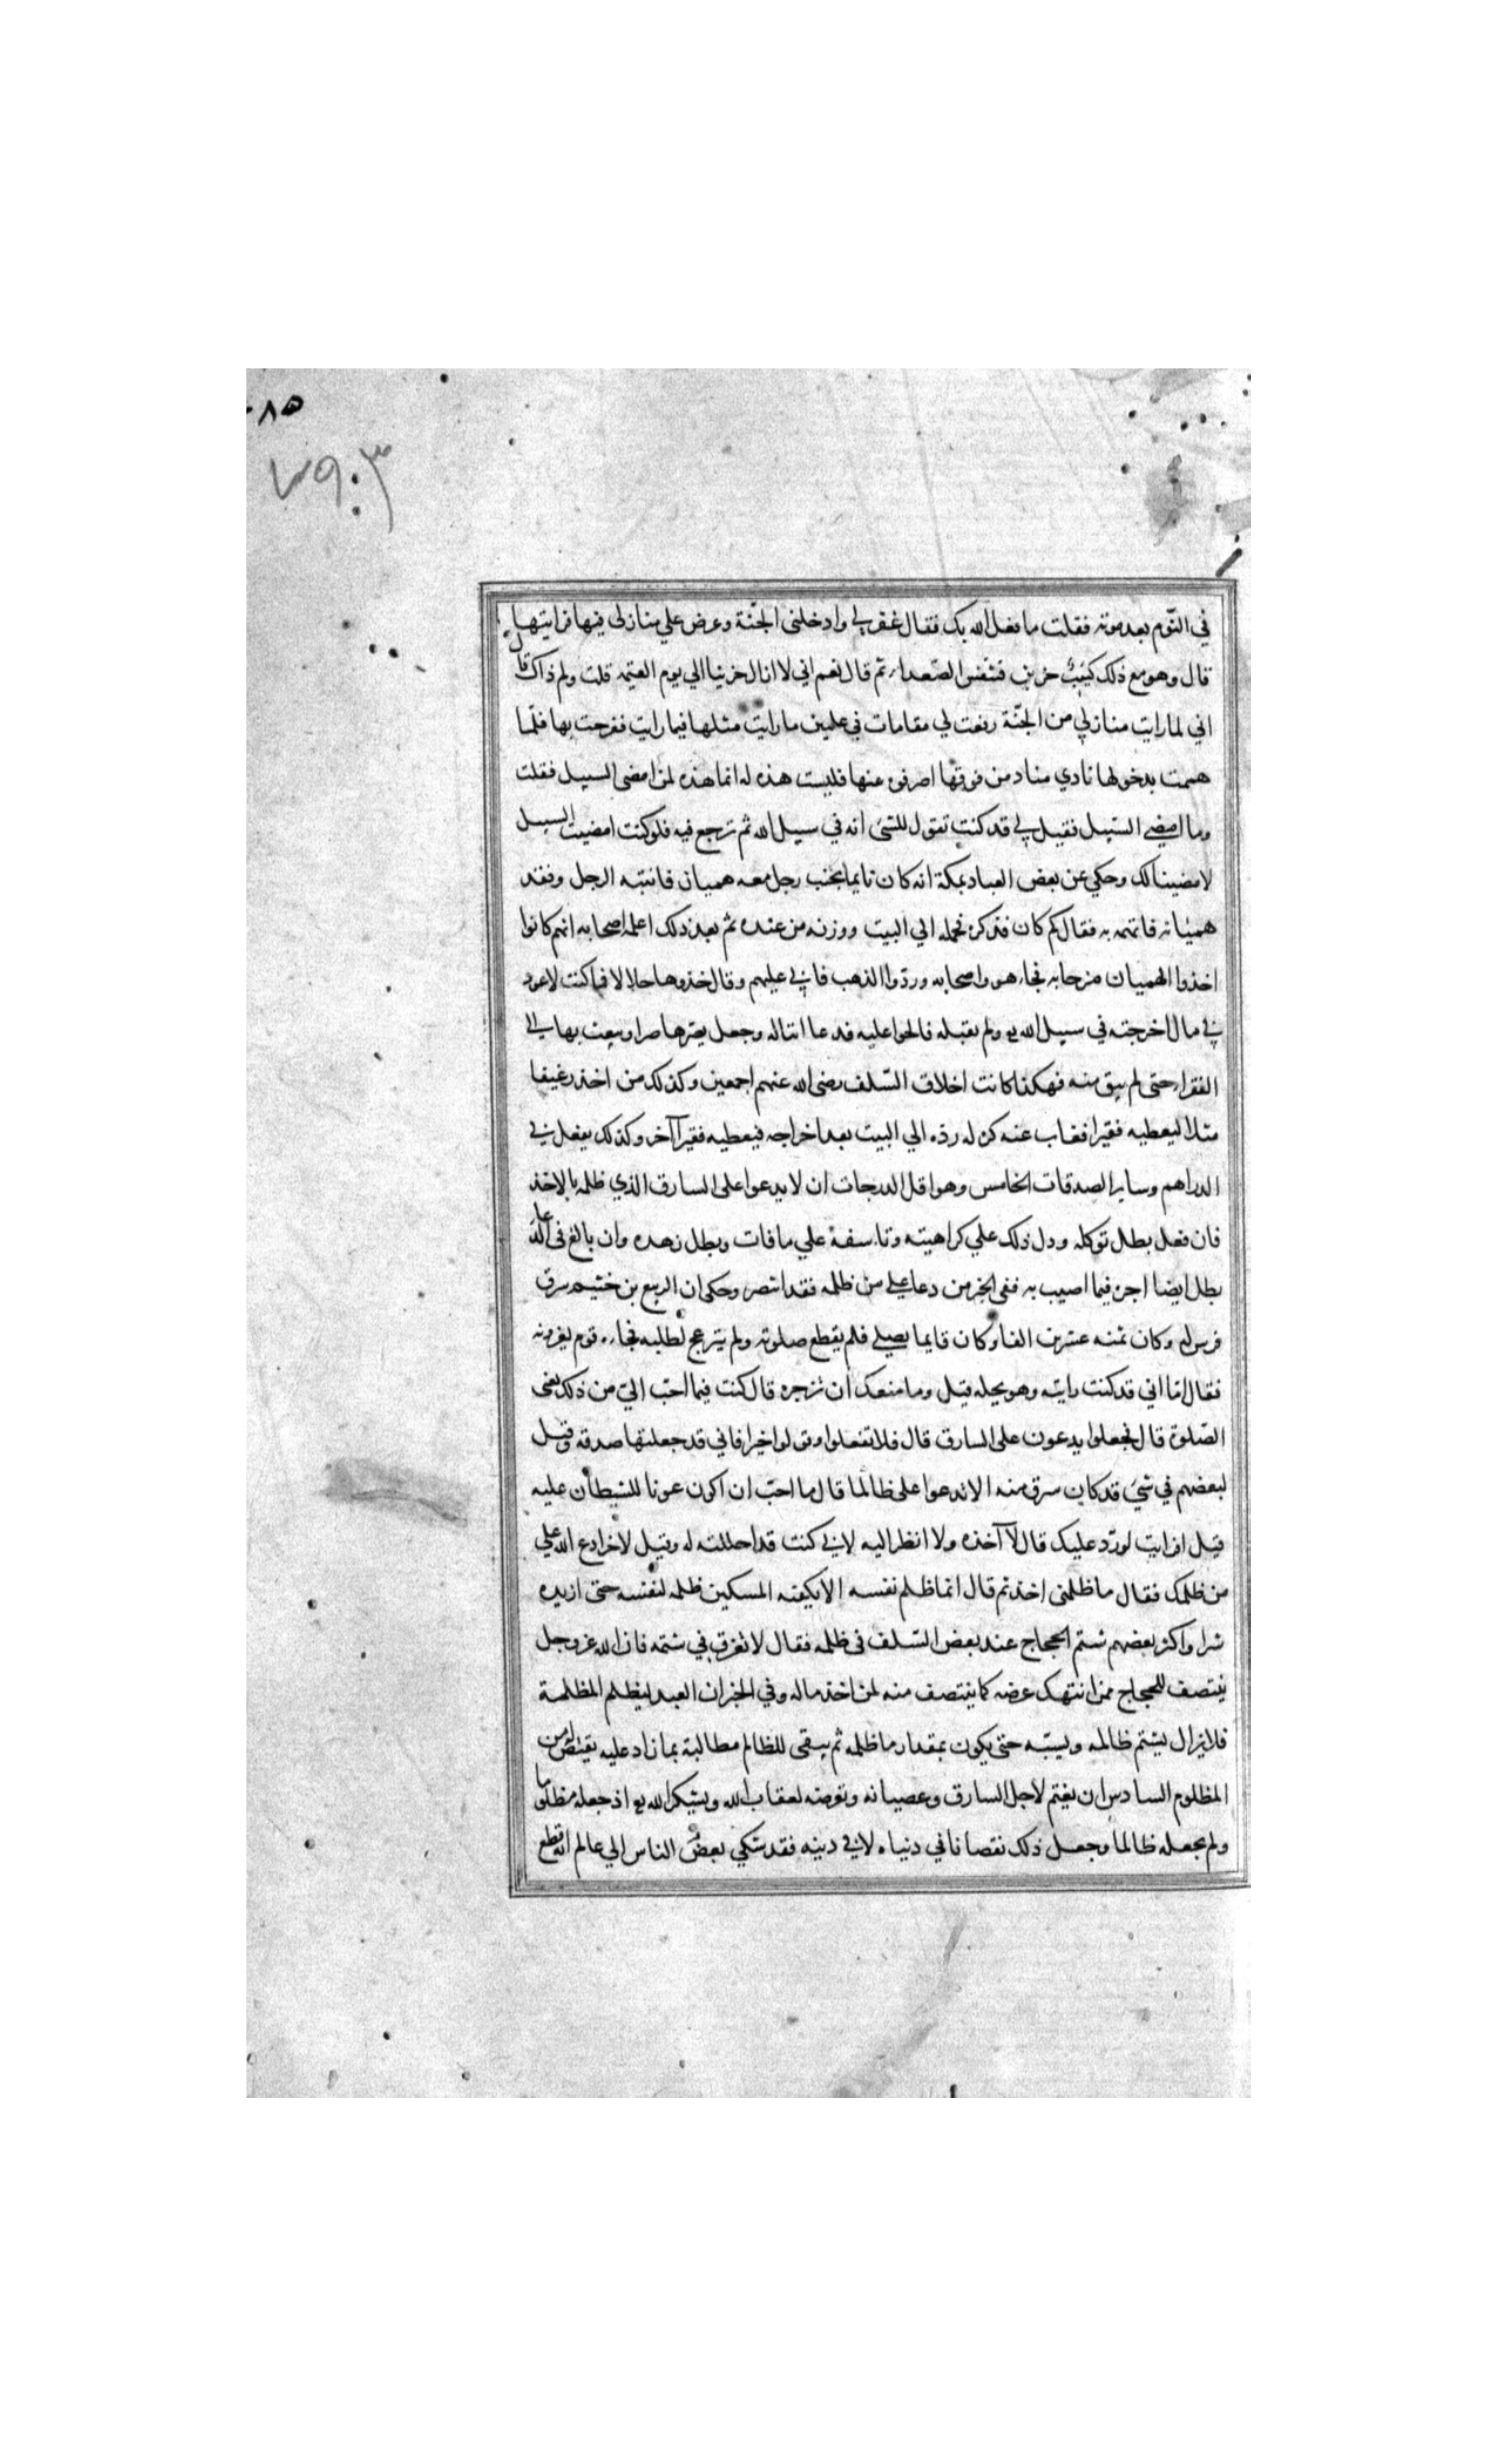 ٨٥
في النّوم بعد موته فقلت ما فعل الله بك فقال غفر لي وادخلني الجنّة وعرض علي منازلى فيها فرايتها
قال وهو مع ذلك كئيب حزين فتنفس الصعدا ثم قال نعم اني لا ازال حزينا الي يوم القيمه قلت ولم ذاك قال
اني لما رايت منازلي من الجنّة رفعت لي مقامات في عليين ما رايت مثلها فيما رايت ففرحت بها فلمّا
هممت بدخولها نادي مناد من فوقها اصرفوه عنها فليست هذه له انما هذه لمن امضى السبيل فقلت
وما امضي السّبيل فقيل لي قد كنت تقول للشئ انه في سبيل الله ثم ترجع فيه فلو كنت امضيت السبيل
لامضينا لك وحكي عن بعض العباد بمكة انه كان نايما بجنب رجل معه هميان فانتبه الرجل وفقد
هميانه فاتهمه به فقال كم كان فذكره فحمله الي البيت ووزنه من عنده ثم بعد ذلك اعلمه اصحابه انهم كانوا
اخذوا الهميان مزحا به فجاء هو واصحابه وردّوا الذهب فابي عليهم وقال خذوها حلالا فما كنت لاعود
في مال اخرجته في سبيل الله يع ولم يقبله فالحوا عليه فدعا ابنا له وجعل يصرها صرا ويبعث بها الي
الفقراء حتى لم يبق منه فهكذا كانت اخلاق السّلف رضى الله عنهم اجمعين وكذلك من اخذ رغيفا
مثلا ليعطيه فقيرا فغاب عنه كره له ردّه الي البيت بعد اخراجه فيعطيه فقيرا آخر وكذلك يفعل في
الدراهم وساير الصدقات الخامس وهو اقل الدرجات ان لا يدعوا على السارق الذي ظلمه بالاخذ
فان فعل بطل توكله ودل ذلك علي كراهيته وتاسفه علي ما فات وبطل زهده وان بالغ فى الدعا
بطل ايضا اجره فيما اصيب به ففى الخبر من دعا علي من ظلمه فقد انتصر وحكى ان الربيع بن خثيم سرق
فرس له وكان ثمنه عشرين الفا وكان قايما يصلي فلم يقطع صلوته ولم ينزعج لطلبه فجاءه قوم يعزونه
فقال امّا اني قد كنت رايته وهو يحله قيل وما منعك ان تزجره قال كنت فيما احبّ اليّ من ذلك يعنى
الصّلوة قال فجعلوا يدعون على السارق قال فلا تفعلوا وقولوا خيرا فاني قد جعلتها صدقه وقيل
لبعضهم في شئ قد كان سرق منه الا تدعوا على ظالمك قال ما احبّ ان اكون عونا للشيطان عليه
قيل افرايت لو ردّ عليك قال لا آخذه ولا انظر اليه لاني كنت قد احللته له وقيل لاخر ادع الله علي
من ظلمك فقال ما ظلمنى احد ثم قال انما ظلم نفسه الا يكفيه المسكين ظلمه لنفسه حتى ازيده
شرا واكثر بعضهم شتم الحجاج عند بعض السّلف فى ظلمه فقال لا تغرق في شتمه فان الله عز وجل
ينتصف للحجاج ممن انتهك عرضه كما ينتصف منه لمن اخذ ماله وفي الخبر ان العبد ليظلم المظلمة
فلا يزال يشتم ظالمه ويسبّه حتى يكون بمقدار ما ظلمه ثم يبقى للظالم مطالبة بما زاد عليه يقتص له من
المظلوم السادس ان يغتم لاجل السارق وعصيانه وتعرضه لعقاب الله ويشكر الله يع اذ جعله مظلوما
ولم يجعله ظالما وجعل ذلك نقصانا في دنياه لا في دينه فقد شكي بعض الناس الي عالم انه قطع